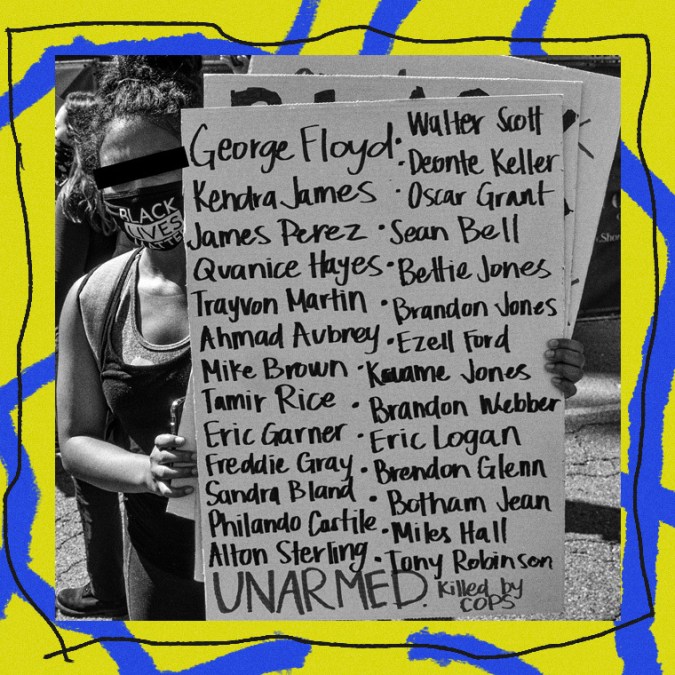 George Floyd.
Kendra James
James Perez
Quanice Hayes
Trayvon Martin
Ahmad Aubrey
Mike Brown
Tamir Rice
Eric Garner
Freddie Gray
Sandra Bland
Philando Castile
Alton Sterling
Walter Scott
· Deonte Keller
· Oscar Grant
· Sean Bell
· Bettie Jones
· Brandon Jones
· Ezell Ford
· Kawame Jones
· Brandon Webber
· Eric Logan
· Brendon Glenn
· Botham Jean
· Miles Hall
· Tony Robinson
UNARMED.
Killed by
COPS
BLACK
LIVES
MATTER